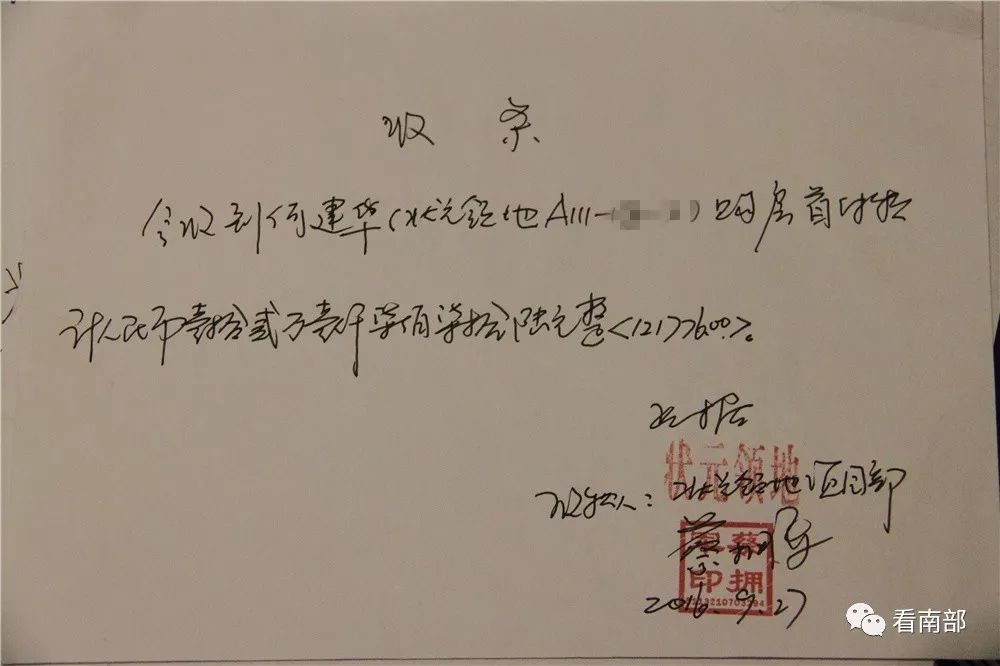 收条
今收到何建华(状元领地A111-)购房首付款
计人民币壹拾贰万壹仟柒佰柒拾陆元整<121776.00>。
此据
状元领地
收款人:状元领地项目部
蔡拥军
印 拥
2016.9.27
看南部